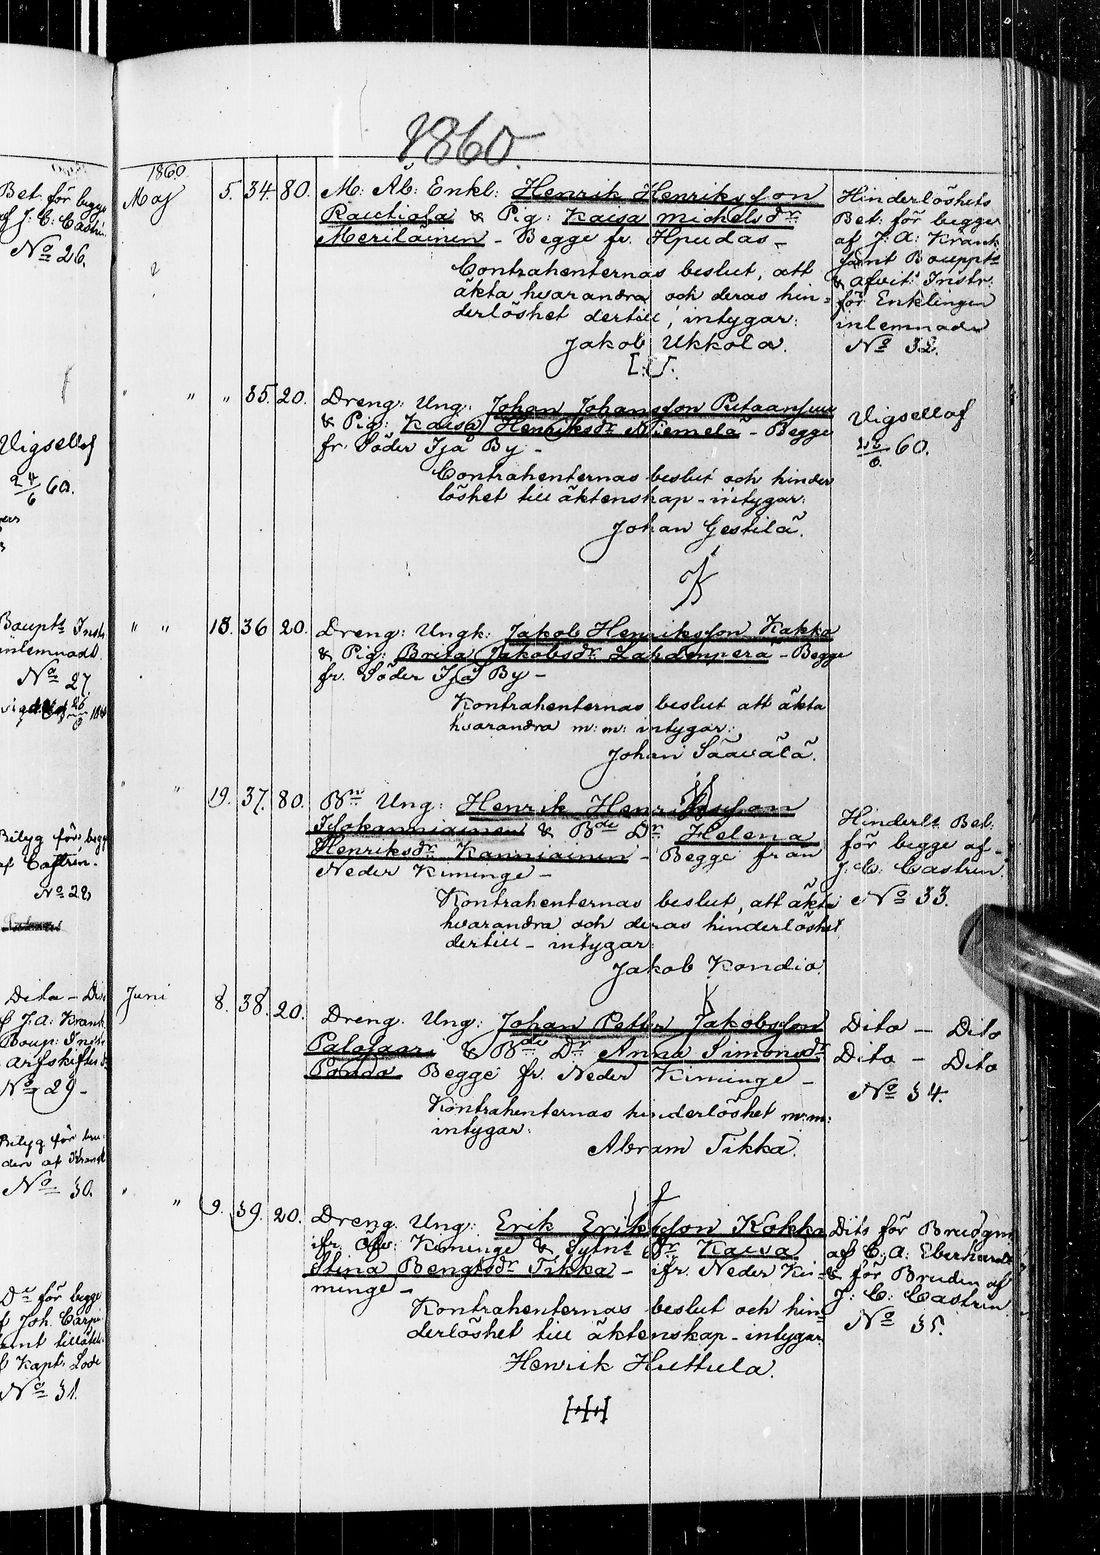 1860.
Bet. för begge
af J: C: Castrin
No 26.
Vigsellaf
24/6 60.
Baupts Inst.
inlemnadt.
No 27
Bilyg för begge
af Castrin.
No 28
Dito – Dito
af J: A: Krank
Boup: Instr
Arfskiftes
No 29 –
Bilyg för bru-
den af Krank
No 30.
De för begge
af Joh. Carp
samt tillåtel
af Kapt: Lode
No 31.
1860.
Maj 5. 34. 80. M: Åb: Enkl: Henrik Henriksson
Rautiola & Pig: Kaisa Michelsdr
Meriläinen – Begge fr. Hpudas –
Contrahenternas beslut, att
äkta hvarandra och deras hin-
derlöshet dertill, intygar:
Jakob Ukkola.
Hinderlöshets
Bet. för begge
af J: A: Krank
jämt Bouppts
& afvit: Instr:
för Enklingen
inlemnade
No 32.
" " " 35. 20. Dreng: Ung: Johan Johansson Putaansuu
& Pig: Kaisa Henriksdr Niemelä – Begge
fr. Söder Ijå By –
Contrahenternas beslut och hinder
löshet till äktenskap – intygar:
Johan Gestilä.
Vigsellaf
60.
" " 18. 36 20. Dreng: Ungk: Jakob Henriksson Kakko
& Pig: Brita Jakobsdr Lahdenperä – Begge
fr. Söder Ijå By –
Kontrahenternas beslut att äkta
hvarandra m: m: intygar:
Johan Säävälä.
" " 19. 37. 80. Bn Ung: Henrik Henriksson
& Bde Dr Helena
Henriksdr Kanniainen – Begge från
Neder Kiminge –
Kontrahenternas beslut, att äkta
hvarandra och deras hinderlöshet
dertill – intygar:
Jakob Kondio.
Hinderls Bet.
för begge af –
J: C: Castrin.
No 33.
Juni 8. 38. 20. Dreng: Ung: Johan Petter Jakobsson
Palojaari & Bde Dr Anna Simonsdr
Ponda Begge fr. Neder Kiminge –
Kontrahenternas hinderlöshet m: m:
intygar:
Abram Tikka.
Dito – Dito
Dito – Dito
No 34.
" " 9. 39. 20. Dreng. Ung: Erik Eriksson Kokko
ifr. Öfv: Kiminge & Sytnt Dr Kaisa
Stina Bengtsdr Tikka – ifr. Neder Ki-
minge –
Kontrahenternas beslut och hin-
derlöshet till äktenskap – intygar
Henrik Huttula.
Dito för Brudgm
af C: A: Eberhardt
& för Bruden af
J: C: Castrin
No 35.